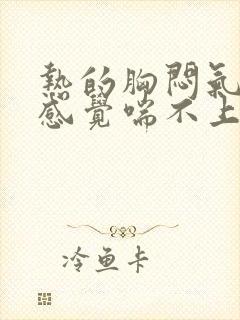 熱的胸悶氣
感覺喘不上
冷鱼卡